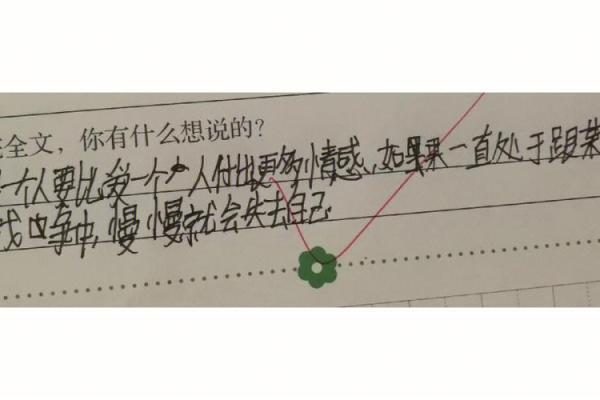 全文，你有什么想说的？
一个人要比爱一个人付出更多情感，如果一直处于跟某
争中，慢慢就会失去自己